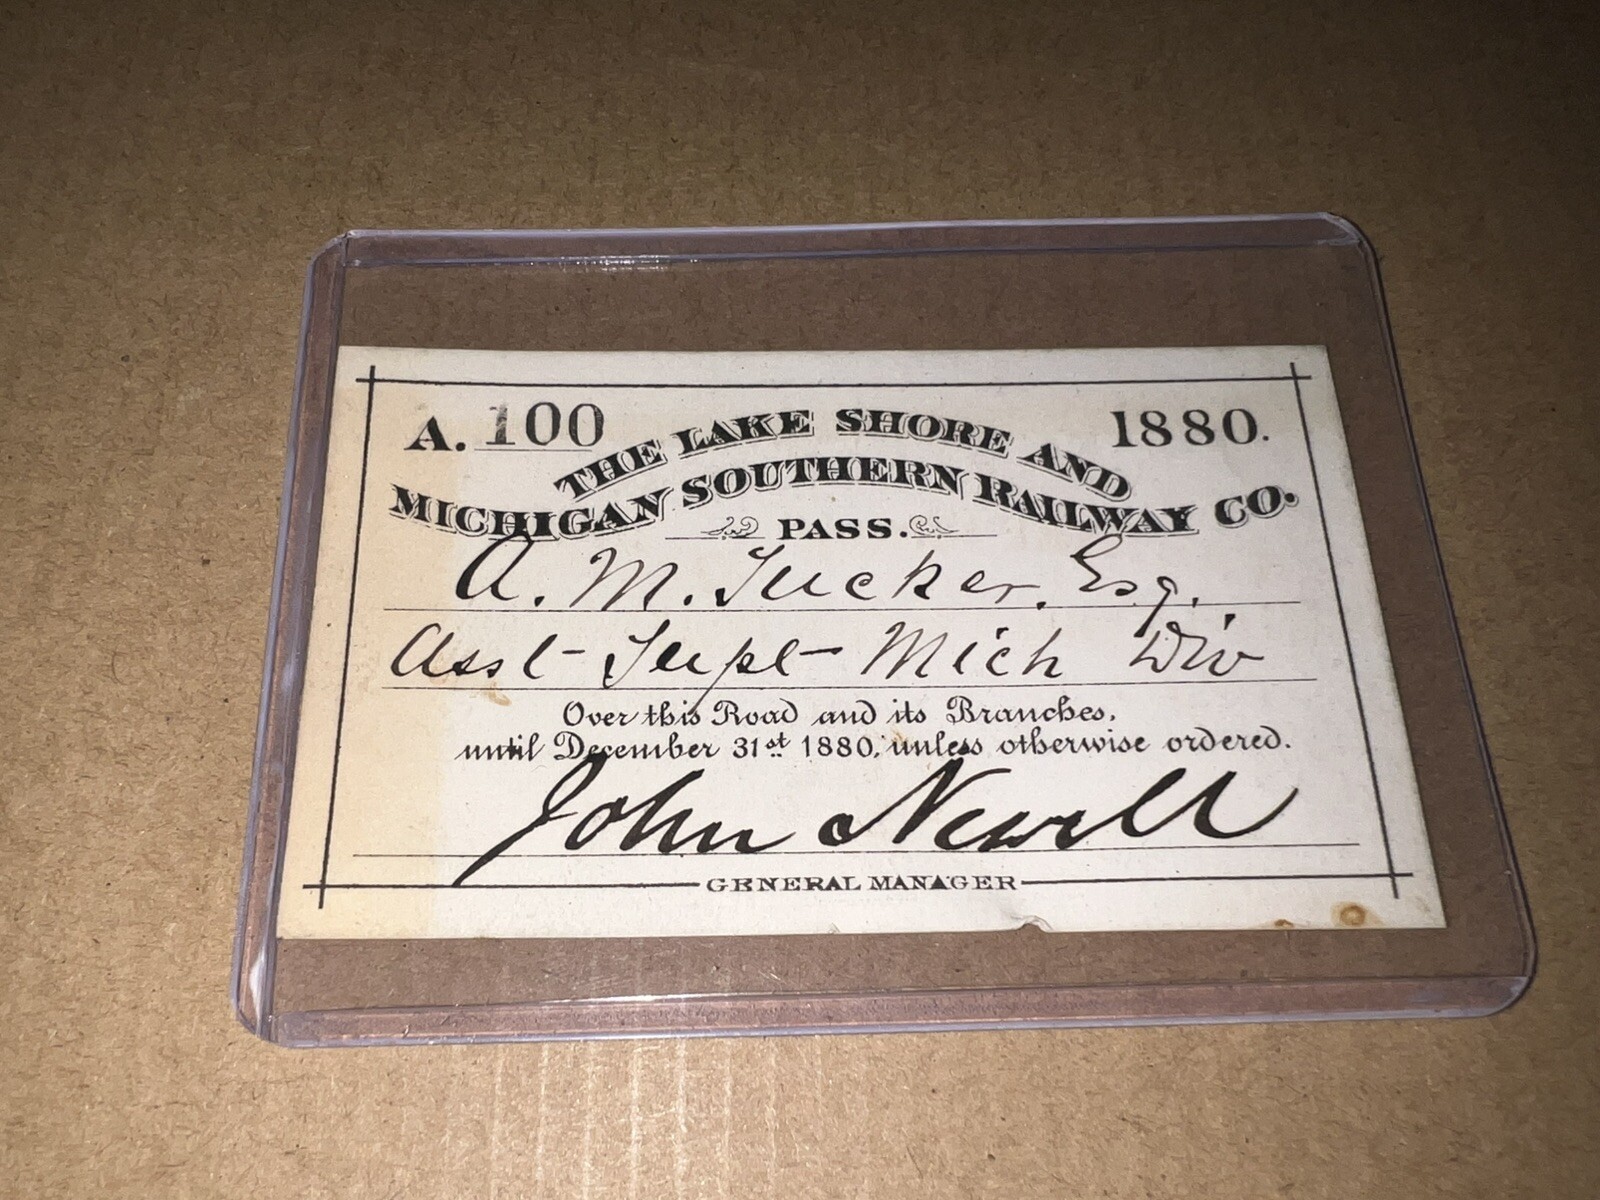 A. 100 1880.
THE LAKE SHORE AND
MICHIGAN SOUTHERN RAILWAY CO.
PASS.
A. M. Tucker, Esq.
Asst- Supt- Mich Div
Over this Road and its Branches,
until December 31st 1880, unless otherwise ordered.
John Newell
GENERAL MANAGER